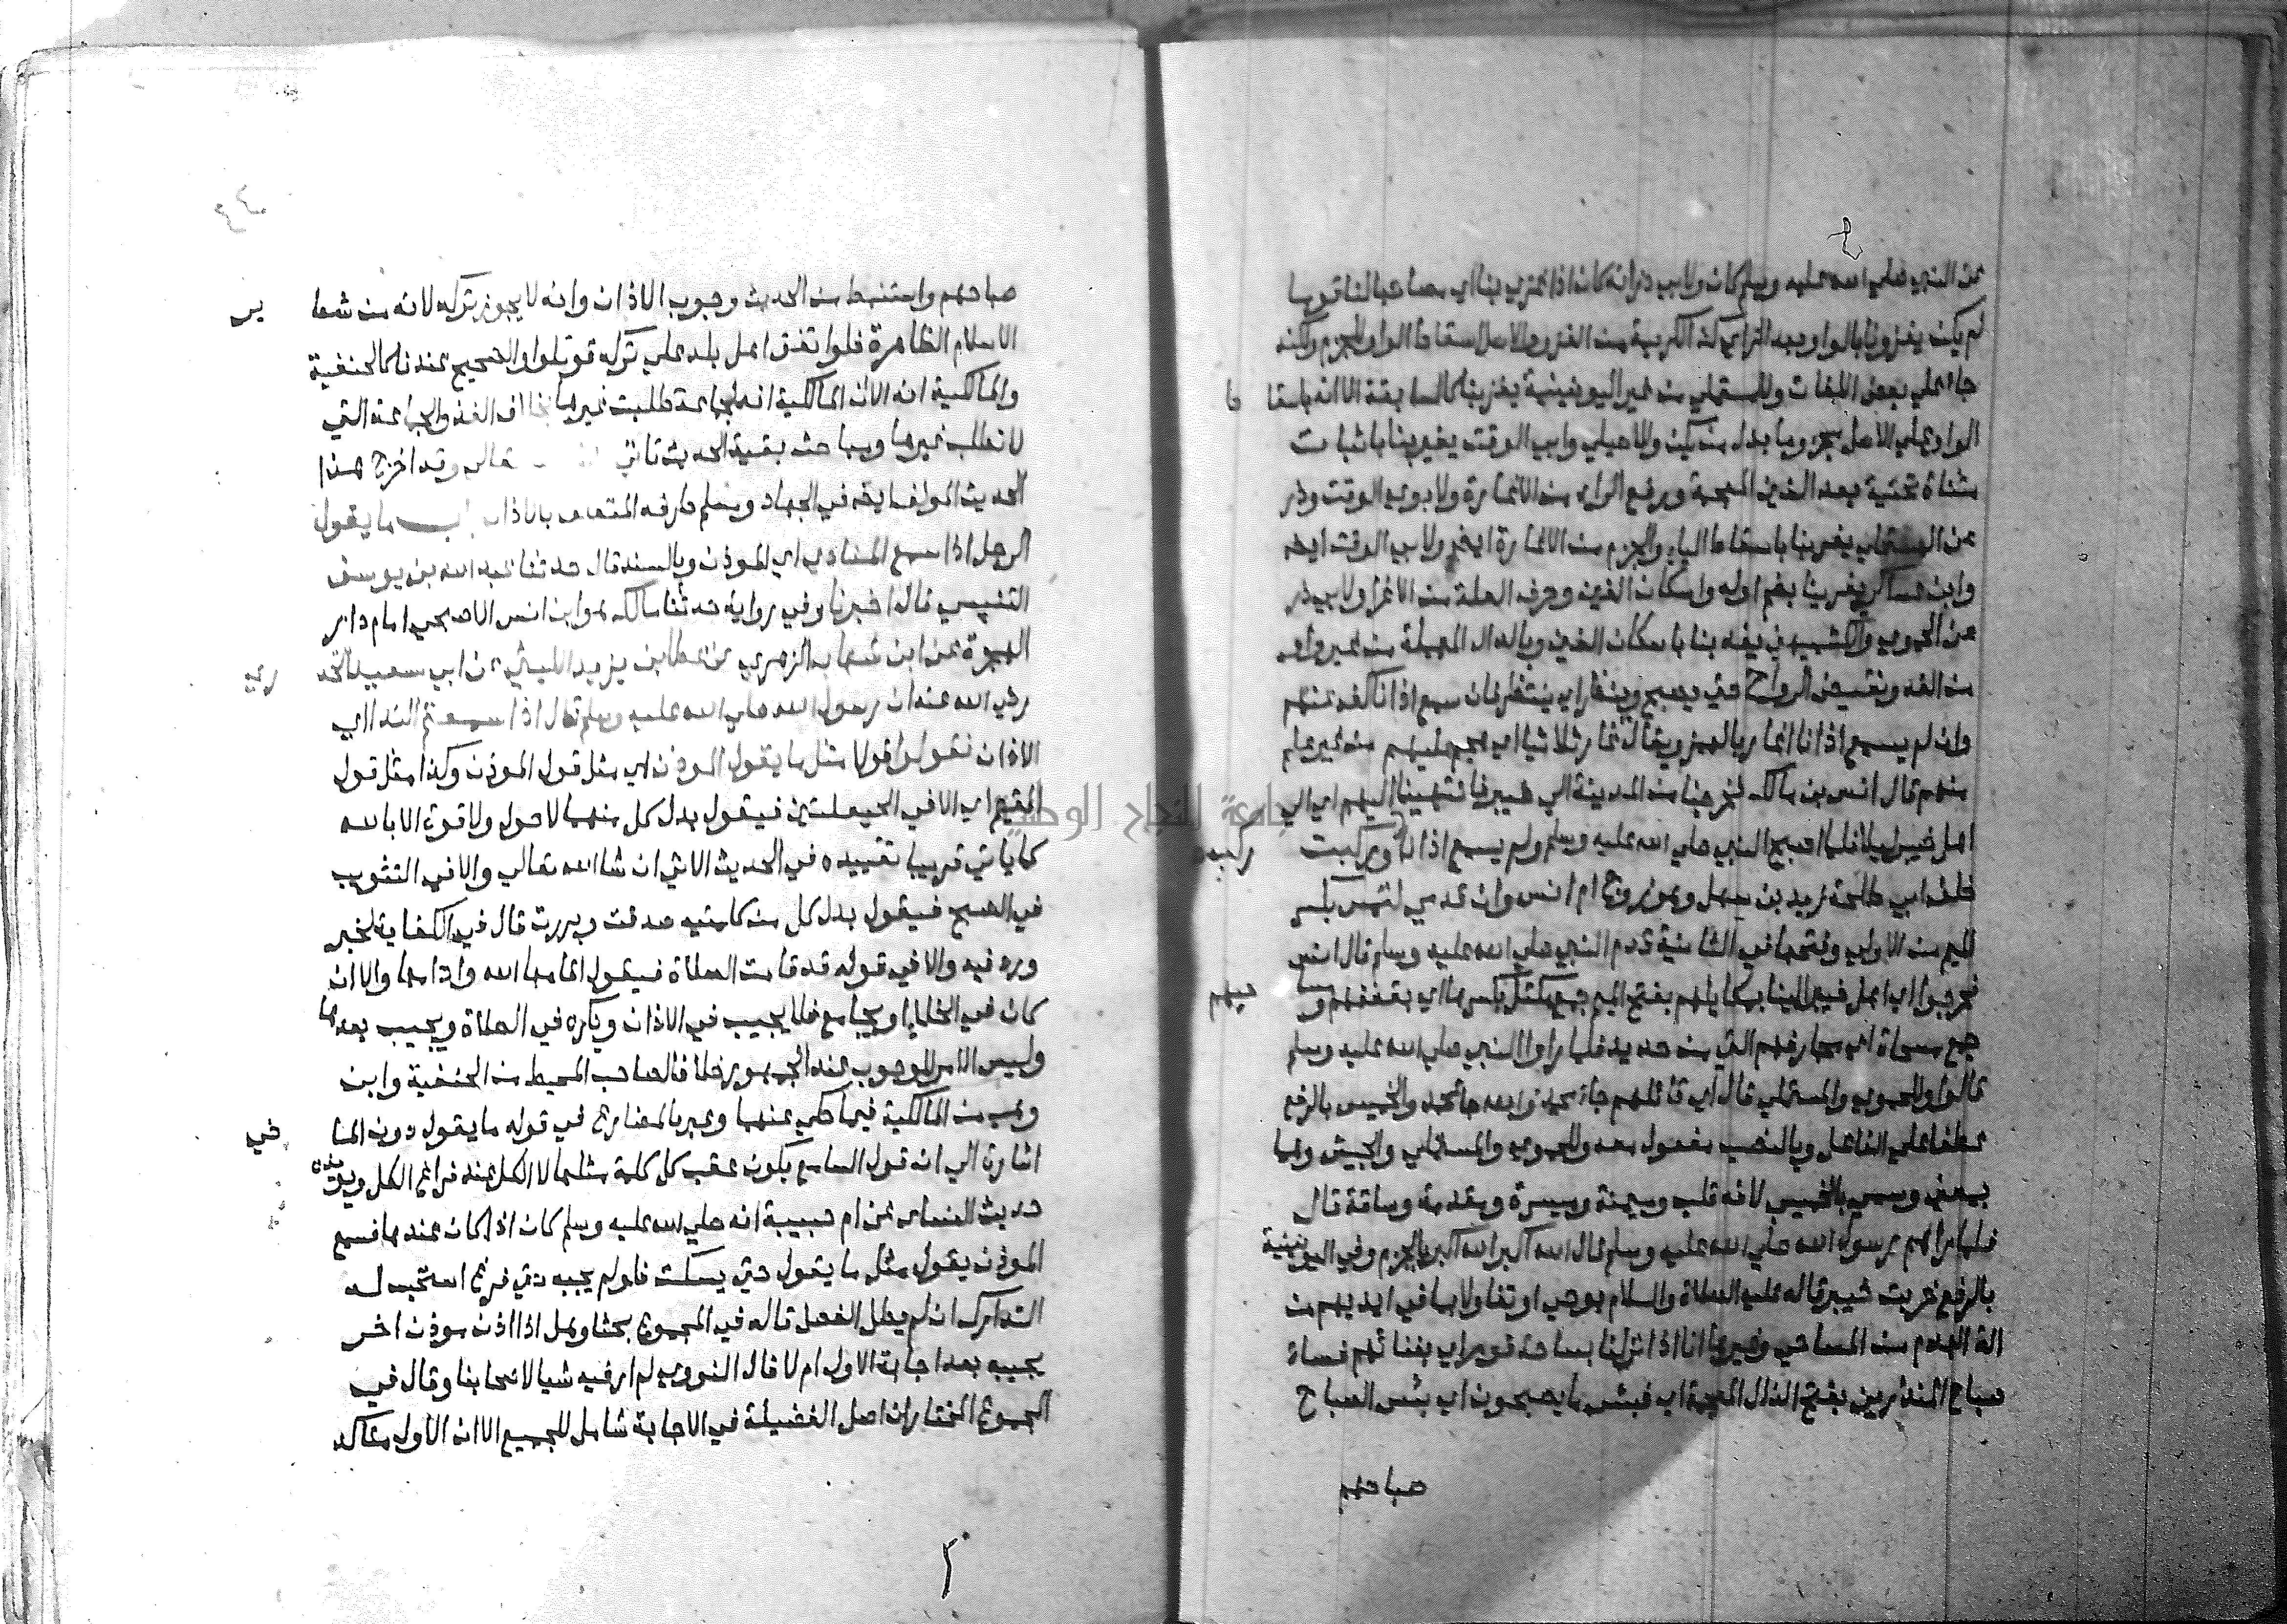 عن النبي صلي الله عليه وسلم كان ولابي ذر انه كان اذا غزي بنا اي مصاحبا لنا قوما
لم يكن يغزو بنا بالواو بعد الزاي من الغزو والاصل اسقاط الواو للجزم ولكنه
جاء علي بعض اللغات وللمستملي من غير اليونينية يغز بنا كالسابقة الا انه باسقا
ط
الواو علي الاصل مجزوما بدل من يكن وللاصيلي وابي الوقت يغير بنا باثبات
مثناة تحتية بعد الغين المعجمة ورفع الراء من الاغارة ولابوي الوقت وذر
عن المستملي يغر بنا باسقاط الياء والجزم من الاغارة ايضا ولابي الوقت ايضا
وابن عساكر يغرينا بضم اوله واسكان الغين وحرف العلة من الاغرا ولابي ذر
عن الحموي والكشميهني يغد بنا باسكان الغين وبالدال المهملة من غير واو
من الغد ونقيض الرواح حتي يصبح وينظر اي ينتظر فان سمع اذانا كف عنهم
وان لم يسمع اذانا اغار بالهمز ويقال غار ثلاثيا اي هجم عليهم من غير علم
منهم قال انس بن مالك فخرجنا من المدينة الي خيبر فانتهينا اليهم اي الي
اهل خيبر ليلا فلما اصبح النبي صلي الله عليه وسلم ولم يسمع اذانا وركبت
ركب
خلف ابي طلحة زيد بن سهل وهو زوج ام انس وان قدمي لتمس بكسر
الميم من الاولي وفتحها في الثانية قدم النبي صلي الله عليه وسلم قال انس
فخرجوا اي اهل خيبر الينا بمكاتلهم بفتح الميم جمع مكتل بكسرها اي بقففهم و مسا
حيهم
جمع مسحاة اي مجارفهم التي من حديد فلما راوا النبي صلي الله عليه وسلم
قالوا وللحموي والمستملي قال اي قائلهم جاء محمد والله جا محمد والخميس بالرفع
عطفا علي الفاعل وبالنصب مفعول معه وللحموي والمستملي والجيش وهما
بمعني وسمي بالخميس لانه قلب وميمنة وميسرة ومقدمة وساقة قال
فلما راهم رسول الله صلي الله عليه وسلم قال الله اكبر الله اكبر بالجزم وفي اليونينية
بالرفع خربت خيبر قاله عليه الصلاة والسلام بوحي او تفاولا بما في ايديهم من
الة الهدم من المساحي وغيرها انا اذا نزلنا بساحة قوم اي بفنائهم فساء
صباح المنذرين بفتح الذال المعجمة اي فبئس ما يصبحون اي بئس الصباح
صباحهم
صباحهم واستنبط من الحديث وجوب الاذان وانه لا يجوز تركه لانه من شعا
ير
الاسلام الظاهرة فلو اتفق اهل بلد علي تركه قوتلوا والصحيح عندنا كالحنفية
والمالكية انه الان المالكية انه لجماعة طلبت غيرها بخلاف الفذ والجماعة التي
لا تطلب غيرها ومباحث بقية الحديث تاتي تعالي وقد اخرج هذا
الحديث المولف ايضا في الجهاد ومسلم طرفه المتعلق بالاذان باب ما يقول
الرجل اذا سمع المنادي اي الموذن وبالسند قال حدثنا عبد الله بن يوسف
التنيسي قال اخبرنا وفي رواية حدثنا مالك هو ابن انس الاصبحي امام دار
الهجرة عن ابن شهاب الزهري عن عطا بن يزيد الليثي عن ابي سعيد الخد
ري
رضي الله عنه ان رسول الله صلي الله عليه وسلم قال اذا سمعتم الندا اي
الاذان فقولوا قولا مثل ما يقول الموذن اي مثل قول الموذن وكذا مثل قول
المقيم اي الا في الحيعلتين فيقول بدل كل منهما لا حول ولا قوة الا بالله
كما ياتي قريبا تقييده في الحديث الاتي ان شا الله تعالي والا في التثويب
في الصبح فيقول بدل كل من كلمتيه صدقت وبررت قال في الكفاية لخبر
ورد فيه والا في قوله قد قامت الصلاة فيقول اقامها الله وادامها والا ان
كان في الخلاء او يجامع فلا يجيب في الاذان ويكره في الصلاة ويجيب بعدها
وليس الامر للوجوب عند الجمهور خلافا لصاحب المحيط من الحنفية وابن
وهب من المالكية فيما حكي عنهما وعبر بالمضارع في قوله ما يقول دون الما
ضي
اشارة الي ان قول السامع يكون عقب كل كلمة مثلها لا الكل عند فراغ الكل ويويده
حديث النساي عن ام حبيبة انه صلي الله عليه وسلم كان اذا كان عندها فسمع
الموذن يقول مثل ما يقول حتي يسكت فلو لم يجبه حتي فرغ استحب له
التدارك ان لم يطل الفصل قاله في المجموع بحثا وهل اذا اذن موذن اخر
يجيبه بعد اجابة الاول ام لا قال النووي لم ار فيه شيا لاصحابنا وقال في
المجموع المختار ان اصل الفضيلة في الاجابة شامل للجميع الا ان الاول متاكد
جامعة النجاح الوطنية